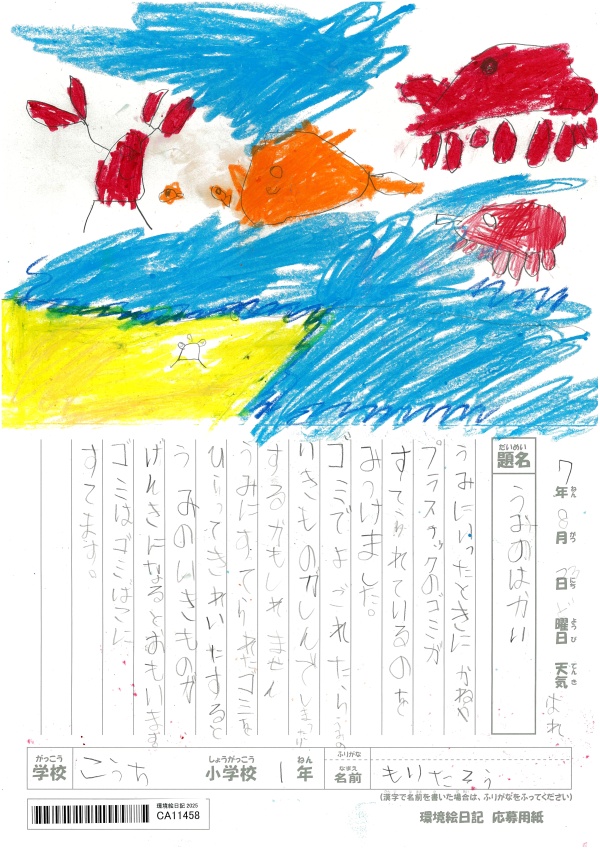 7年ねん 8月がつ 23日にち ど曜日ようび 天気てんき はれ
題名だいめい うみのはかい
うみにいったときに かねや
プラスチックのゴミが
すてられているのを
みつけました。
ゴミでよごれたらうみの
いきものがしんでしまったり
するかもしれません
うみにすてられたゴミを
ひろってきれいにすると
うみのいきものが
げんきになるとおもいます
ゴミはゴミばこに
すてます。
学校がっこう こうち 小学校しょうがっこう 1年ねん ふりがな 名前なまえ もりたそう
(漢字で名前を書いた場合は、ふりがなをふってください)
環境絵日記 2025
CA11458
環境絵日記 応募用紙